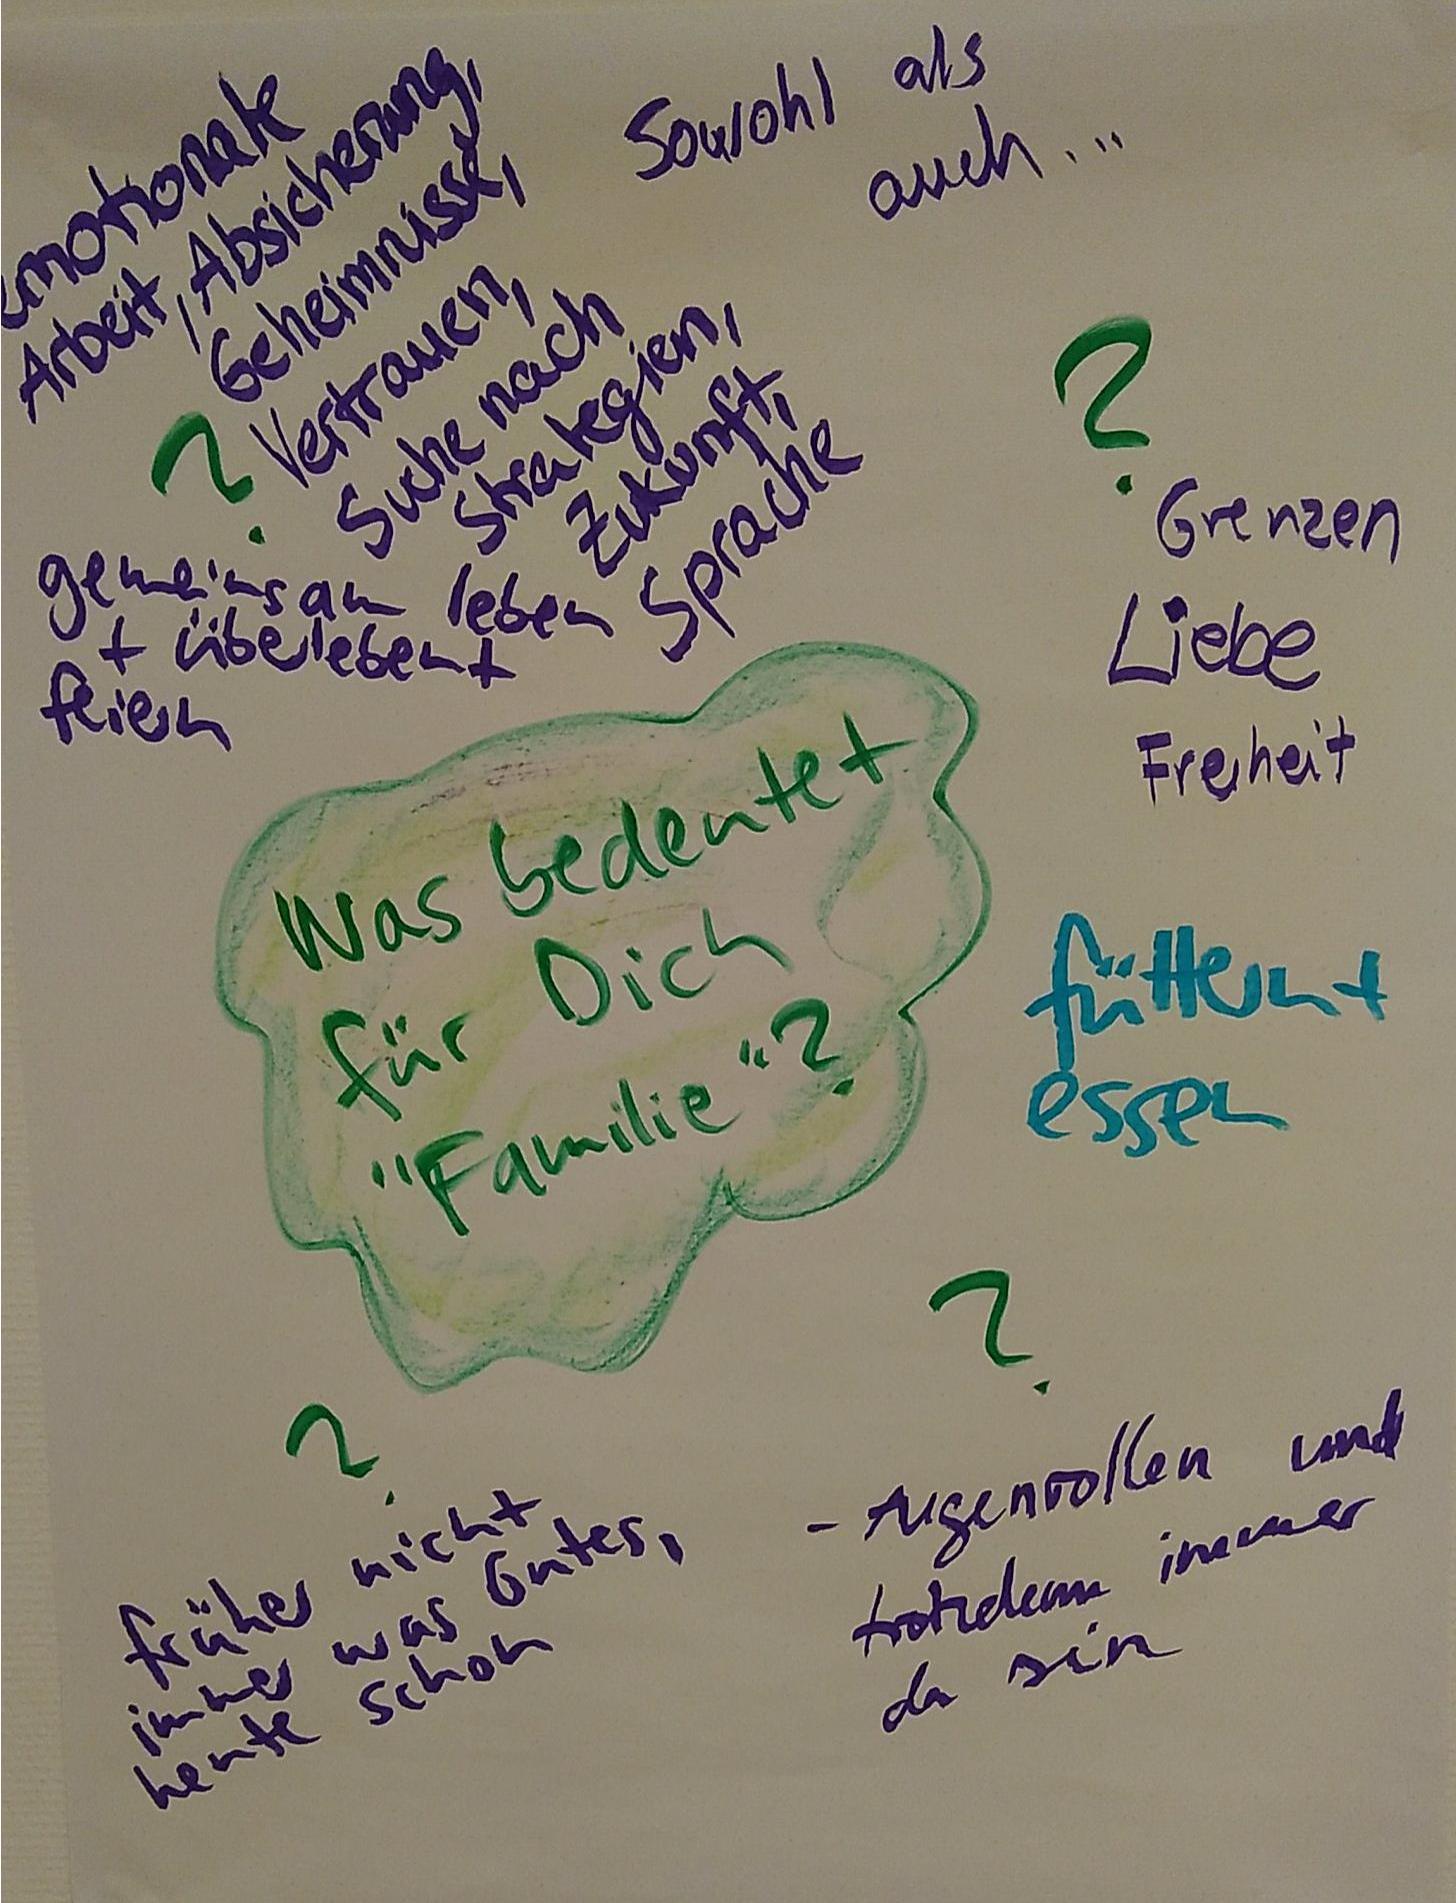 emotionale
Arbeit, Absicherung,
Geheimnisse,
Vertrauen,
Suche nach
Strategien,
Zukunft,
Sprache
Sowohl als
auch...
?
gemeinsam leben
+ überleben +
feiern
?
Grenzen
Liebe
Freiheit
Was bedeutet
für Dich
"Familie"?
füttern +
essen
?
früher nicht
immer was Gutes,
heute schon
?
- Augenrollen und
trotzdem immer
da sein